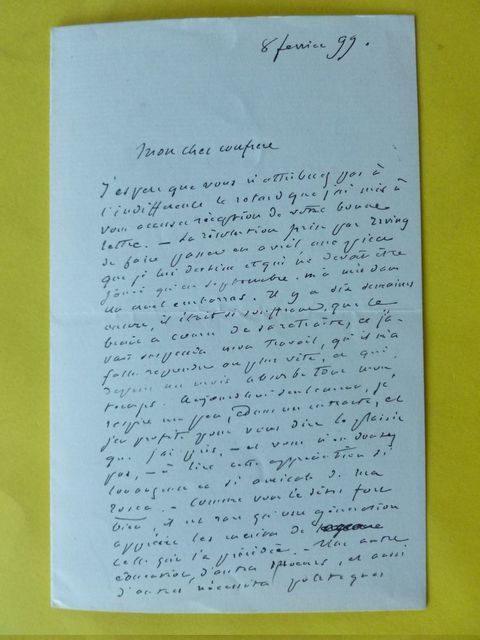 8 fevrier 99.
Mon cher confrere
J'espere que vous n'attribuez pas à
l'indifference le retard que j'ai mis à
vous accuser réception de votre bonne
lettre. – La résolution prise par Irving
de faire passer en avril une pièce
que je lui destine et qui ne devait être
jouée qu'en septembre m'a mis dans
un cruel embarras. Il y a dix semaines
encore, il était si souffrant, que le
bruit a couru de sa retraite, et j'a-
vais suspendu mon travail, qu'il m'a
fallu reprendre au plus vite, et qui
depuis un mois absorbe tout mon
temps. Aujourd'hui seulement, je
respire un peu, dans un entracte, et
j'en profite pour vous dire le plaisir
que j'ai pris, – et vous n'en doutez
pas, – à lire cette appréciation si
louangeuse et si amicale de ma
Tosca. – Comme vous le dites fort
bien, il est rare qu'une génération
apprécie les de
celle qui l'a précédée. – Une autre
éducation, d'autres moeurs, et aussi
d'autres nécessités politiques